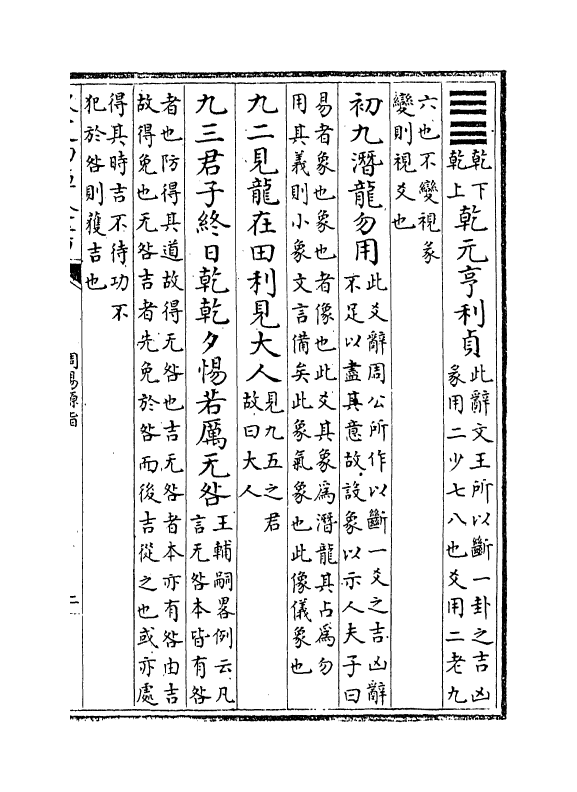 ䷀乾下乾上乾元亨利貞此辭文王所以斷一卦之吉凶
彖用二少七八也爻用二老九
六也不變視彖
變則視爻也
初九潛龍勿用此爻辭周公所作以斷一爻之吉凶辭
不足以盡其意故設象以示人夫子曰
易者象也象也者像也此爻其象為潛龍其占為勿
用其義則小象文言備矣此象氣象也此像儀象也
九二見龍在田利見大人見九五之君
故曰大人
九三君子終日乾乾夕惕若厲无咎王輔嗣畧例云凡
言无咎本皆有咎
者也防得其道故得无咎也吉无咎者本亦有咎由吉
故得免也无咎吉者先免於咎而後吉從之也或亦處
得其時吉不待功不
犯於咎則獲吉也
周易源旨
二